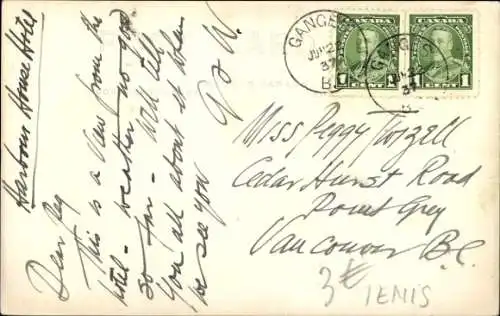 Harbour House Hotel
Dear Peg
This is a view from the
hotel - weather no good
so far - Will tell
you all about it when
we see you
G & W.
GANGES
JUN 2
37
B.C
CANADA
1 CENT 1
CANADA
1 CENT 1
GANGES
37
B
Miss Peggy
Cedar Hurst Road
Point Grey
Vancouver B.C.
3
IENIS